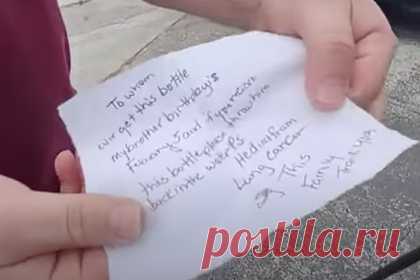 To whom
ever get this bottle
my brother birthday's
February 5 and if you recive
this bottle please throw him
back in the water P.S
He died from
Lung cancer
This
Family
Thank you
postila.ru